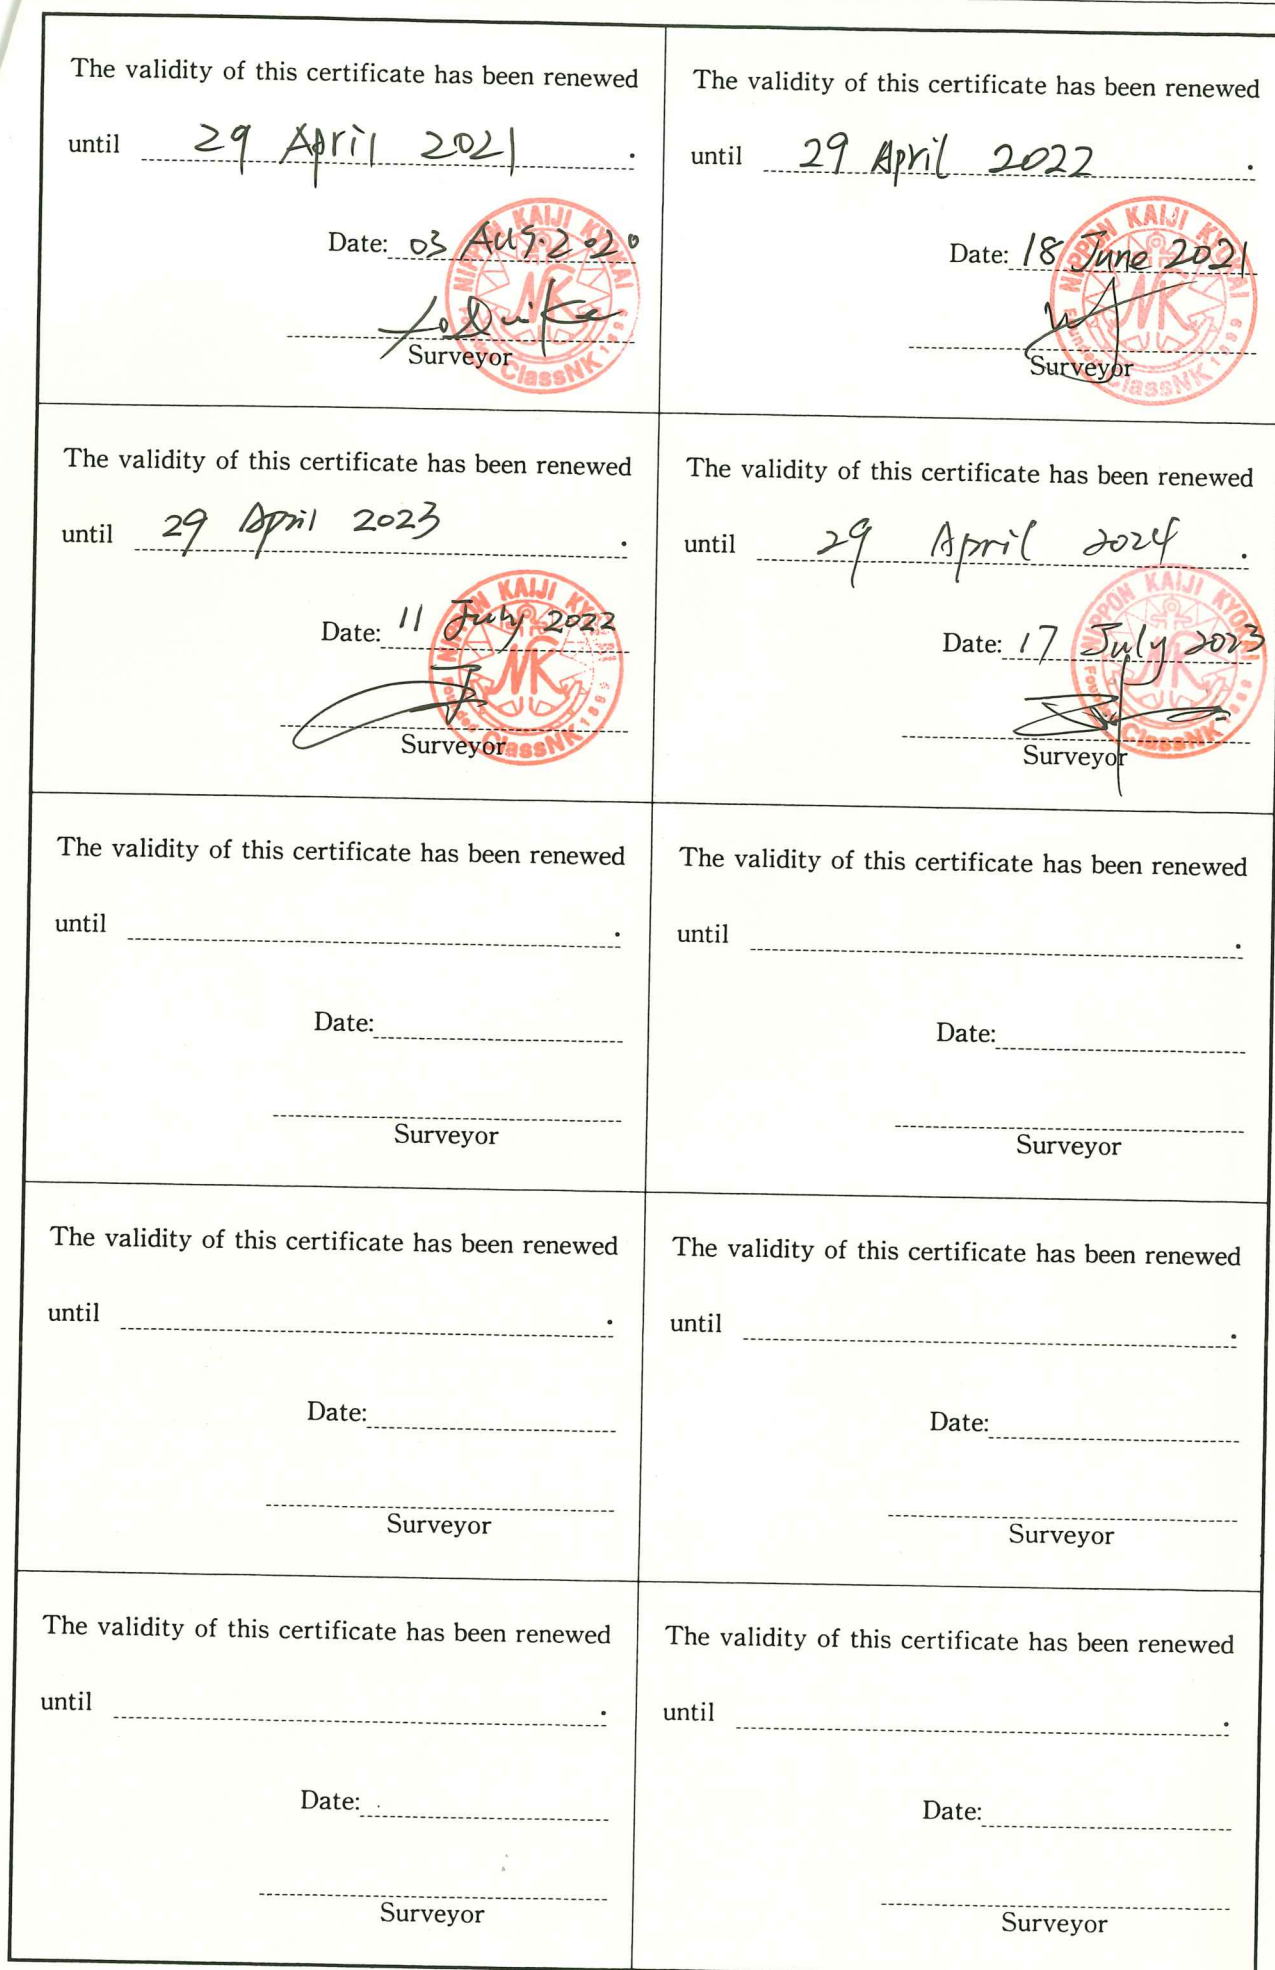 The validity of this certificate has been renewed
until 29 April 2021 .
Date: 03 AUG. 2020
Surveyor
NIPPON KAIJI KYOKAI
NK
Founded 1899
ClassNK
The validity of this certificate has been renewed
until 29 April 2022 .
Date: 18 June 2021
Surveyor
NIPPON KAIJI KYOKAI
NK
Founded 1899
ClassNK
The validity of this certificate has been renewed
until 29 April 2023 .
Date: 11 July 2022
Surveyor
NIPPON KAIJI KYOKAI
NK
Founded 1899
ClassNK
The validity of this certificate has been renewed
until 29 April 2024 .
Date: 17 July 2023
Surveyor
NIPPON KAIJI KYOKAI
NK
Founded 1899
ClassNK
The validity of this certificate has been renewed
until .
Date:
Surveyor
The validity of this certificate has been renewed
until .
Date:
Surveyor
The validity of this certificate has been renewed
until .
Date:
Surveyor
The validity of this certificate has been renewed
until .
Date:
Surveyor
The validity of this certificate has been renewed
until .
Date:
Surveyor
The validity of this certificate has been renewed
until .
Date:
Surveyor